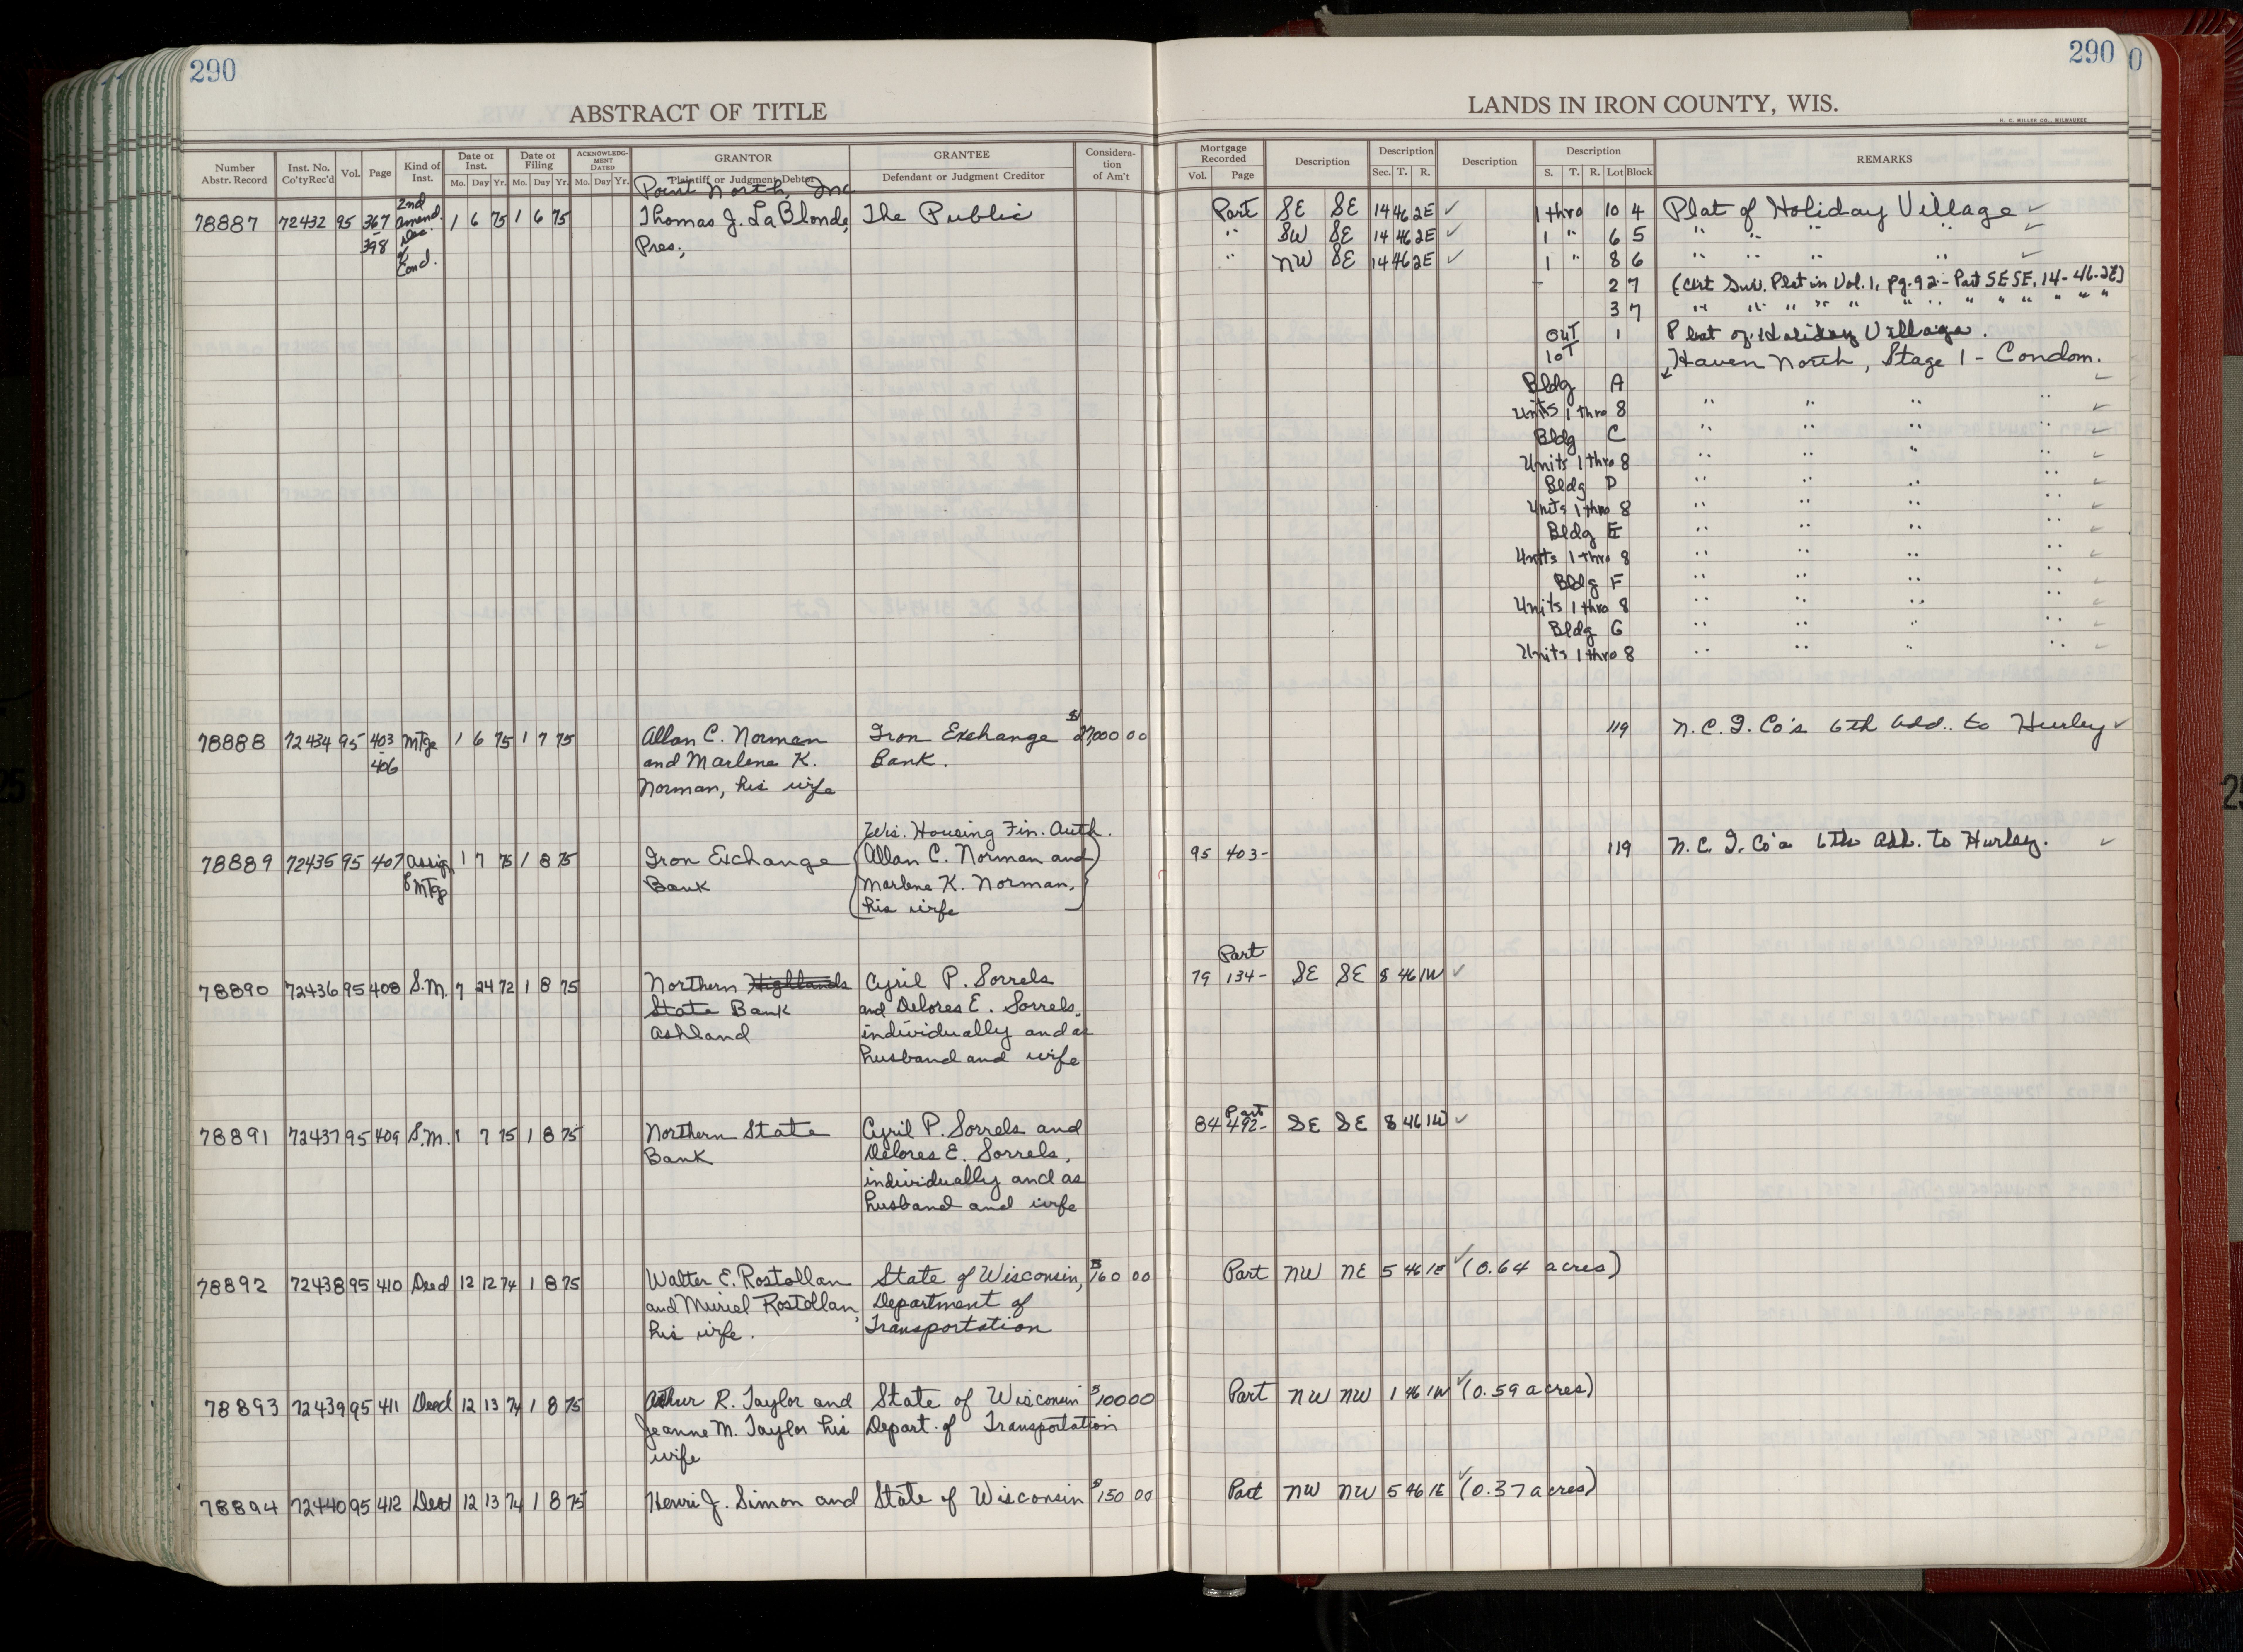 290
ABSTRACT OF TITLE
Number Abstr. Record Inst. No. Co'tyRec'd Vol. Page Kind of Inst. Date of Inst. Mo. Day Yr. Date of Filing Mo. Day Yr. ACKNOWLEDG-MENT DATED Mo. Day Yr. GRANTOR Plaintiff or Judgment Debtor GRANTEE Defendant or Judgment Creditor Considera-tion of Am't
Point North, Inc
78887 72432 95 367-398 2nd amend. Dec. of Cond. 1 6 75 1 6 75 Thomas J. LaBlonde, The Public
Pres.,
78888 72434 95 403-406 Mtge 1 6 75 1 7 75 Allan C. Norman Iron Exchange $27,000 00
and Marlene K. Bank.
Norman, his wife
Wis. Housing Fin. Auth.
78889 72435 95 407 Assig of Mtg 1 7 75 1 8 75 Iron Exchange (Allan C. Norman and
Bank Marlene K. Norman,
his wife)
78890 72436 95 408 S.M. 7 24 72 1 8 75 Northern Highlands Cyril P. Sorrels
State Bank and Delores E. Sorrels,
Ashland individually and as
husband and wife
78891 72437 95 409 S.M. 1 7 75 1 8 75 Northern State Cyril P. Sorrels and
Bank Delores E. Sorrels,
individually and as
husband and wife
78892 72438 95 410 Deed 12 12 74 1 8 75 Walter E. Rostollan State of Wisconsin, $160 00
and Muriel Rostollan, Department of
his wife. Transportation
78893 72439 95 411 Deed 12 13 74 1 8 75 Arthur R. Taylor and State of Wisconsin $100 00
Jeanne M. Taylor his Depart. of Transportation
wife
78894 72440 95 412 Deed 12 13 74 1 8 75 Henri J. Simon and State of Wisconsin $150 00
290
0
LANDS IN IRON COUNTY, WIS.
H. C. MILLER CO., MILWAUKEE
Mortgage Recorded Vol. Page Description Description Sec. T. R. Description Description S. T. R. Lot Block REMARKS
Part SE SE 14 46 2E ✓ 1 thro 10 4 Plat of Holiday Village ✓
" SW SE 14 46 2E ✓ 1 " 6 5 " " " " ✓
" NW SE 14 46 2E ✓ 1 " 8 6 " " " " ✓
2 7 (Cert Sur. Plat in Vol. 1, pg. 92 - Part SE SE, 14-46-2E)
3 7 " " " " " " " " " " " "
Out 1 Plat of Holiday Village.
lot Haven North, Stage 1 - Condom.
Bldg A ✓
Units 1 thro 8 " " " " ✓
Bldg C " " " " ✓
Units 1 thro 8 " " " " ✓
Bldg D " " " " ✓
Units 1 thro 8 " " " " ✓
Bldg E " " " " ✓
Units 1 thro 8 " " " " ✓
Bldg F " " " " ✓
Units 1 thro 8 " " " " ✓
Bldg G " " " " ✓
Units 1 thro 8 " " " " ✓
119 N.C.I. Co's 6th Add. to Hurley ✓
95 403- 119 N.C.I. Co's 6th Add. to Hurley. ✓
Part
79 134- SE SE 8 46 1W ✓
Part
84 492- SE SE 8 46 1W ✓
Part NW NE 5 46 1E ✓ (0.64 acres)
Part NW NW 1 46 1W ✓ (0.59 acres)
Part NW NW 5 46 1E ✓ (0.37 acres)